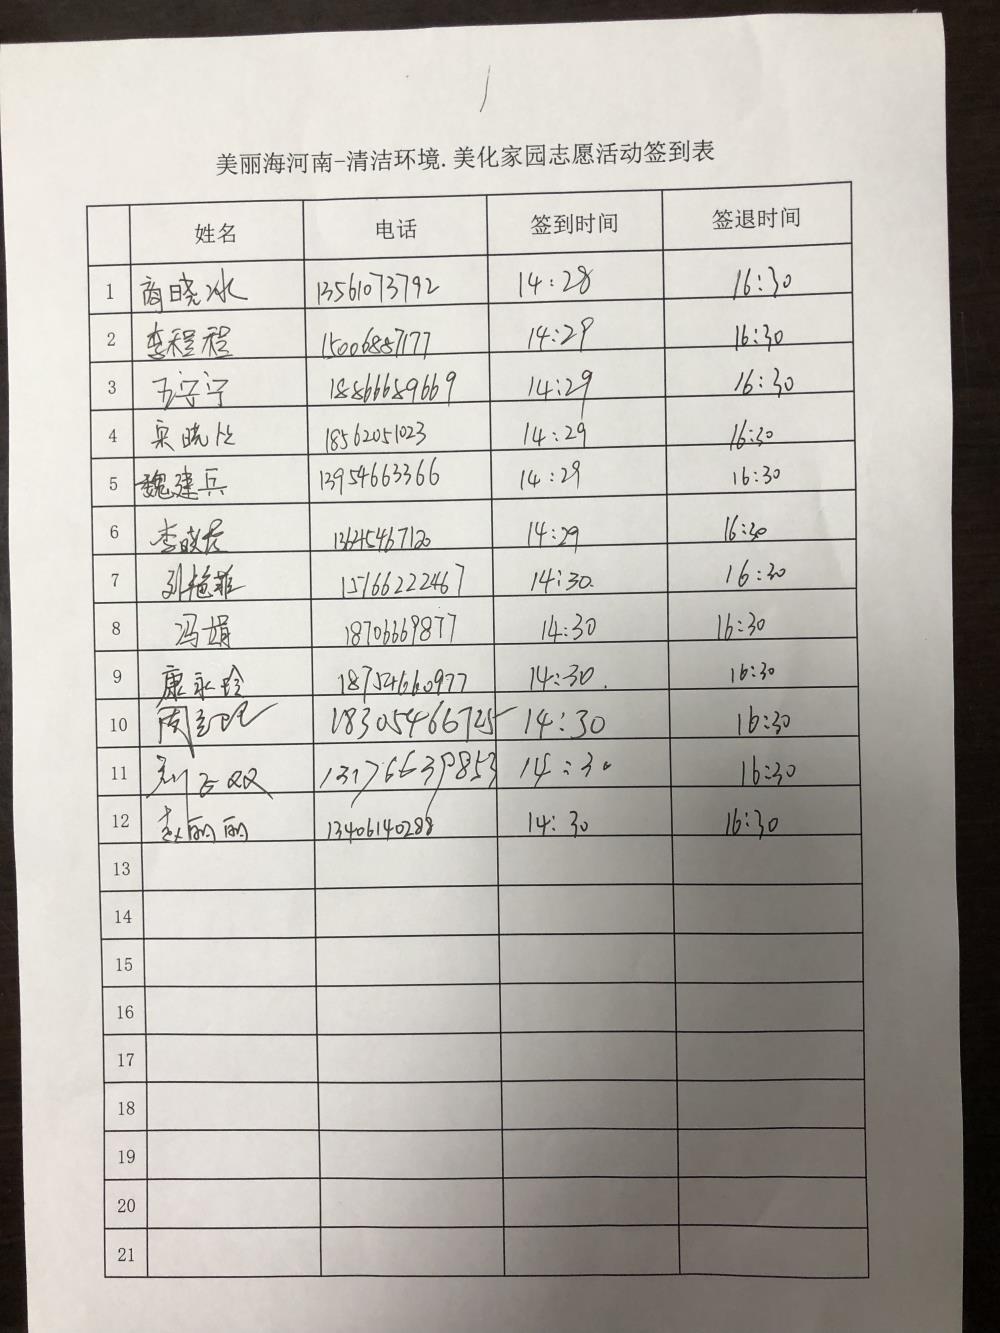 美丽海河南-清洁环境.美化家园志愿活动签到表
姓名 电话 签到时间 签退时间
1 商晓冰 13561073792 14:28 16:30
2 李程程 15006887177 14:29 16:30
3 宁宁 18866689669 14:29 16:30
4 晓 18562051023 14:29 16:30
5 魏建兵 13954663366 14:29 16:30
6 李晓 13645467120 14:29 16:30
7 孙艳菲 15166222467 14:30. 16:30
8 冯娟 18706669877 14:30 16:30
9 康永玲 18754660977 14:30. 16:30
10 18305466725 14:30 16:30
11 双 13176639853 14:30 16:30
12 赵丽丽 13406140288 14:30 16:30
13
14
15
16
17
18
19
20
21